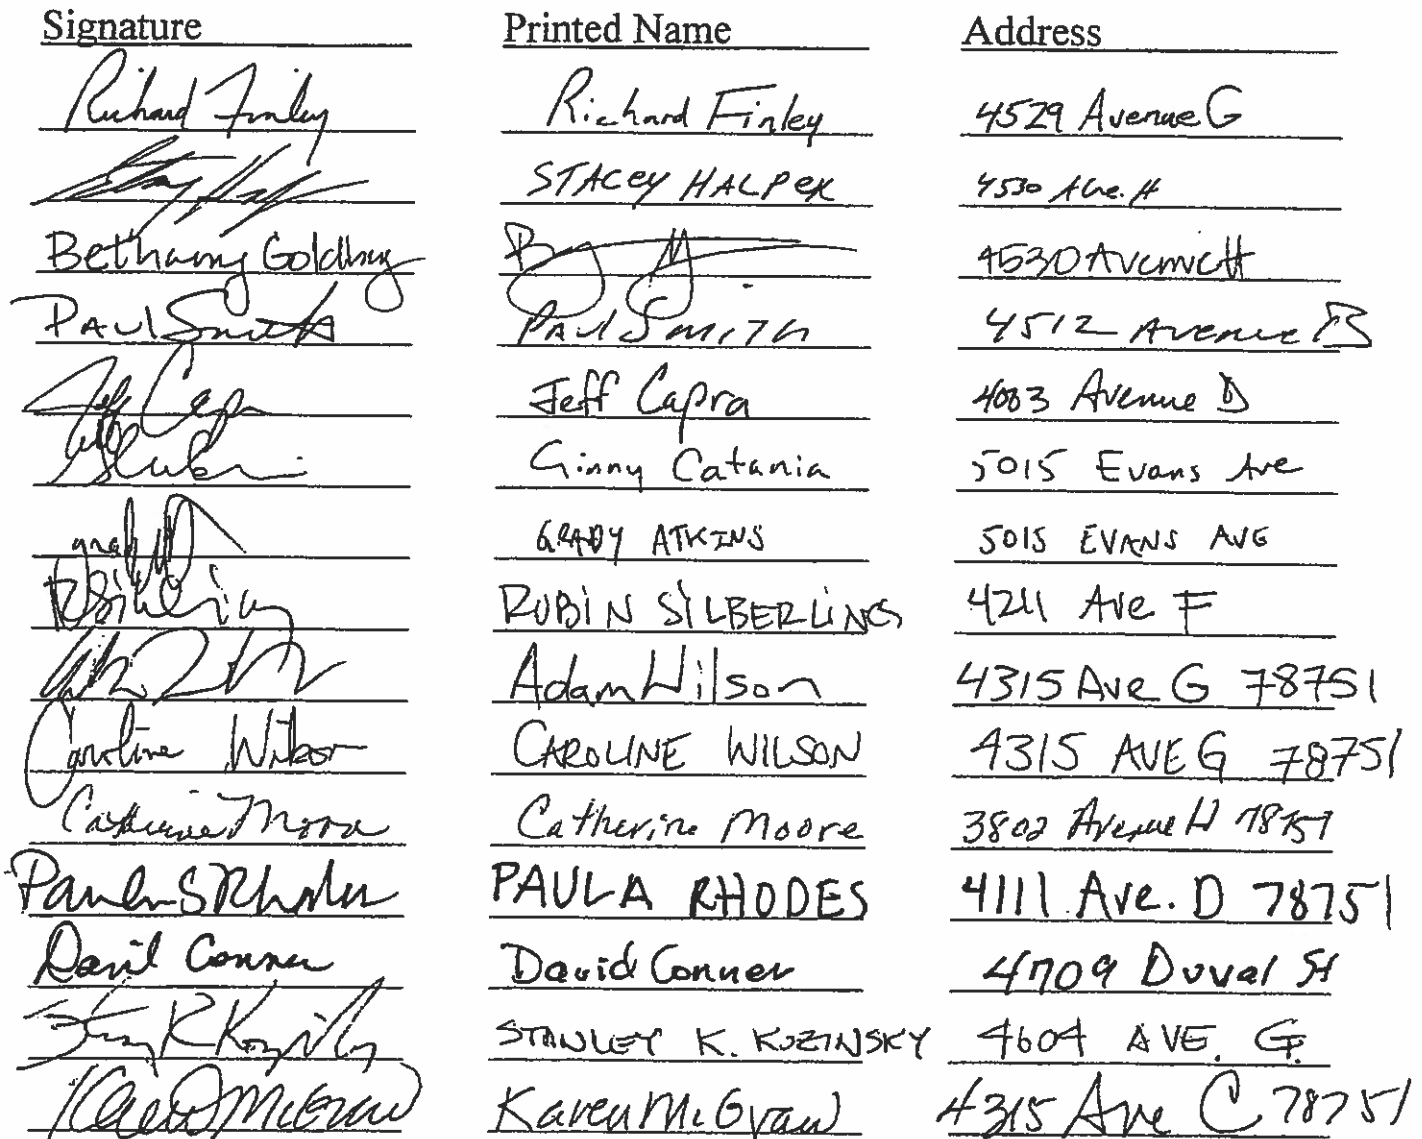 Signature Printed Name Address
Richard Finley Richard Finley 4529 Avenue G
STACEY HALPER 4530 Ave. H
Bethany Goldberg 4530 Avenue H
PAUL Smith PAUL SMITH 4512 Avenue B
Jeff Capra Jeff Capra 4003 Avenue D
Ginny Catania 5015 Evans Ave
GRADY ATKINS 5015 EVANS AVE
RUBIN SILBERLING 4211 Ave F
Adam Wilson 4315 Ave G 78751
Caroline Wilson CAROLINE WILSON 4315 AVE G 78751
Catherine Moore Catherine Moore 3802 Avenue H 78751
Paula S Rhodes PAULA RHODES 4111 Ave. D 78751
David Conner David Conner 4709 Duval St
STANLEY K. KOZINSKY 4604 AVE. G.
Karen McGraw Karen McGraw 4315 Ave C 78751